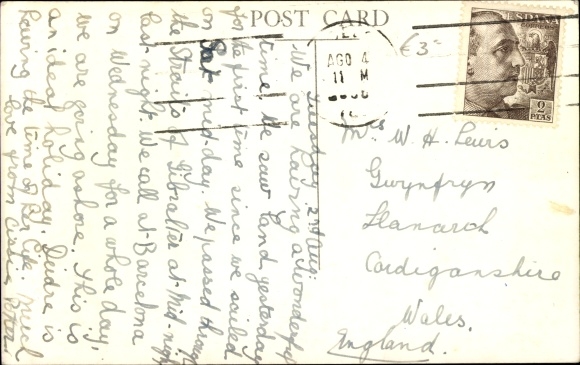 POST CARD
€3-
AGO 4
11 M
ESPAÑA
2
PTAS
Tuesday 2nd Aug:
We are having a wonderful
time. We saw land yesterday
for the first time since we sailed
on Sat. mid-day. We passed through
the Straits of Gibralter at mid-night
last night. We call at Barcelona
on Wednesday for a whole day,
we are going ashore. This is
an ideal holiday. Deidre is
having the time of her life. Much
love from
Mrs W. H. Lewis
Gwynfryn
Llanarch
Cardiganshire
Wales.
England.